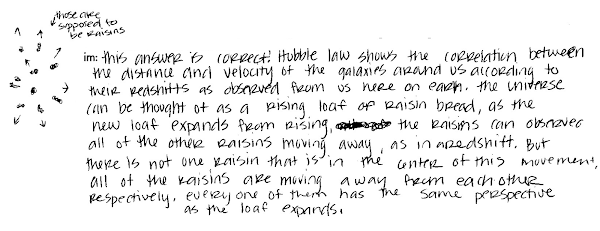 those are
supposed to
be raisins
im: this answer is correct! Hubble law shows the correlation between
the distance and velocity of the galaxies around us according to
their redshifts as observed from us here on earth. the universe
can be thought of as a rising loaf of raisin bread, as the
new loaf expands from rising, the raisins can observed
all of the other raisins moving away, as in a redshift. But
there is not one raisin that is in the center of this movement,
all of the raisins are moving away from each other
respectively. every one of them has the same perspective
as the loaf expands.